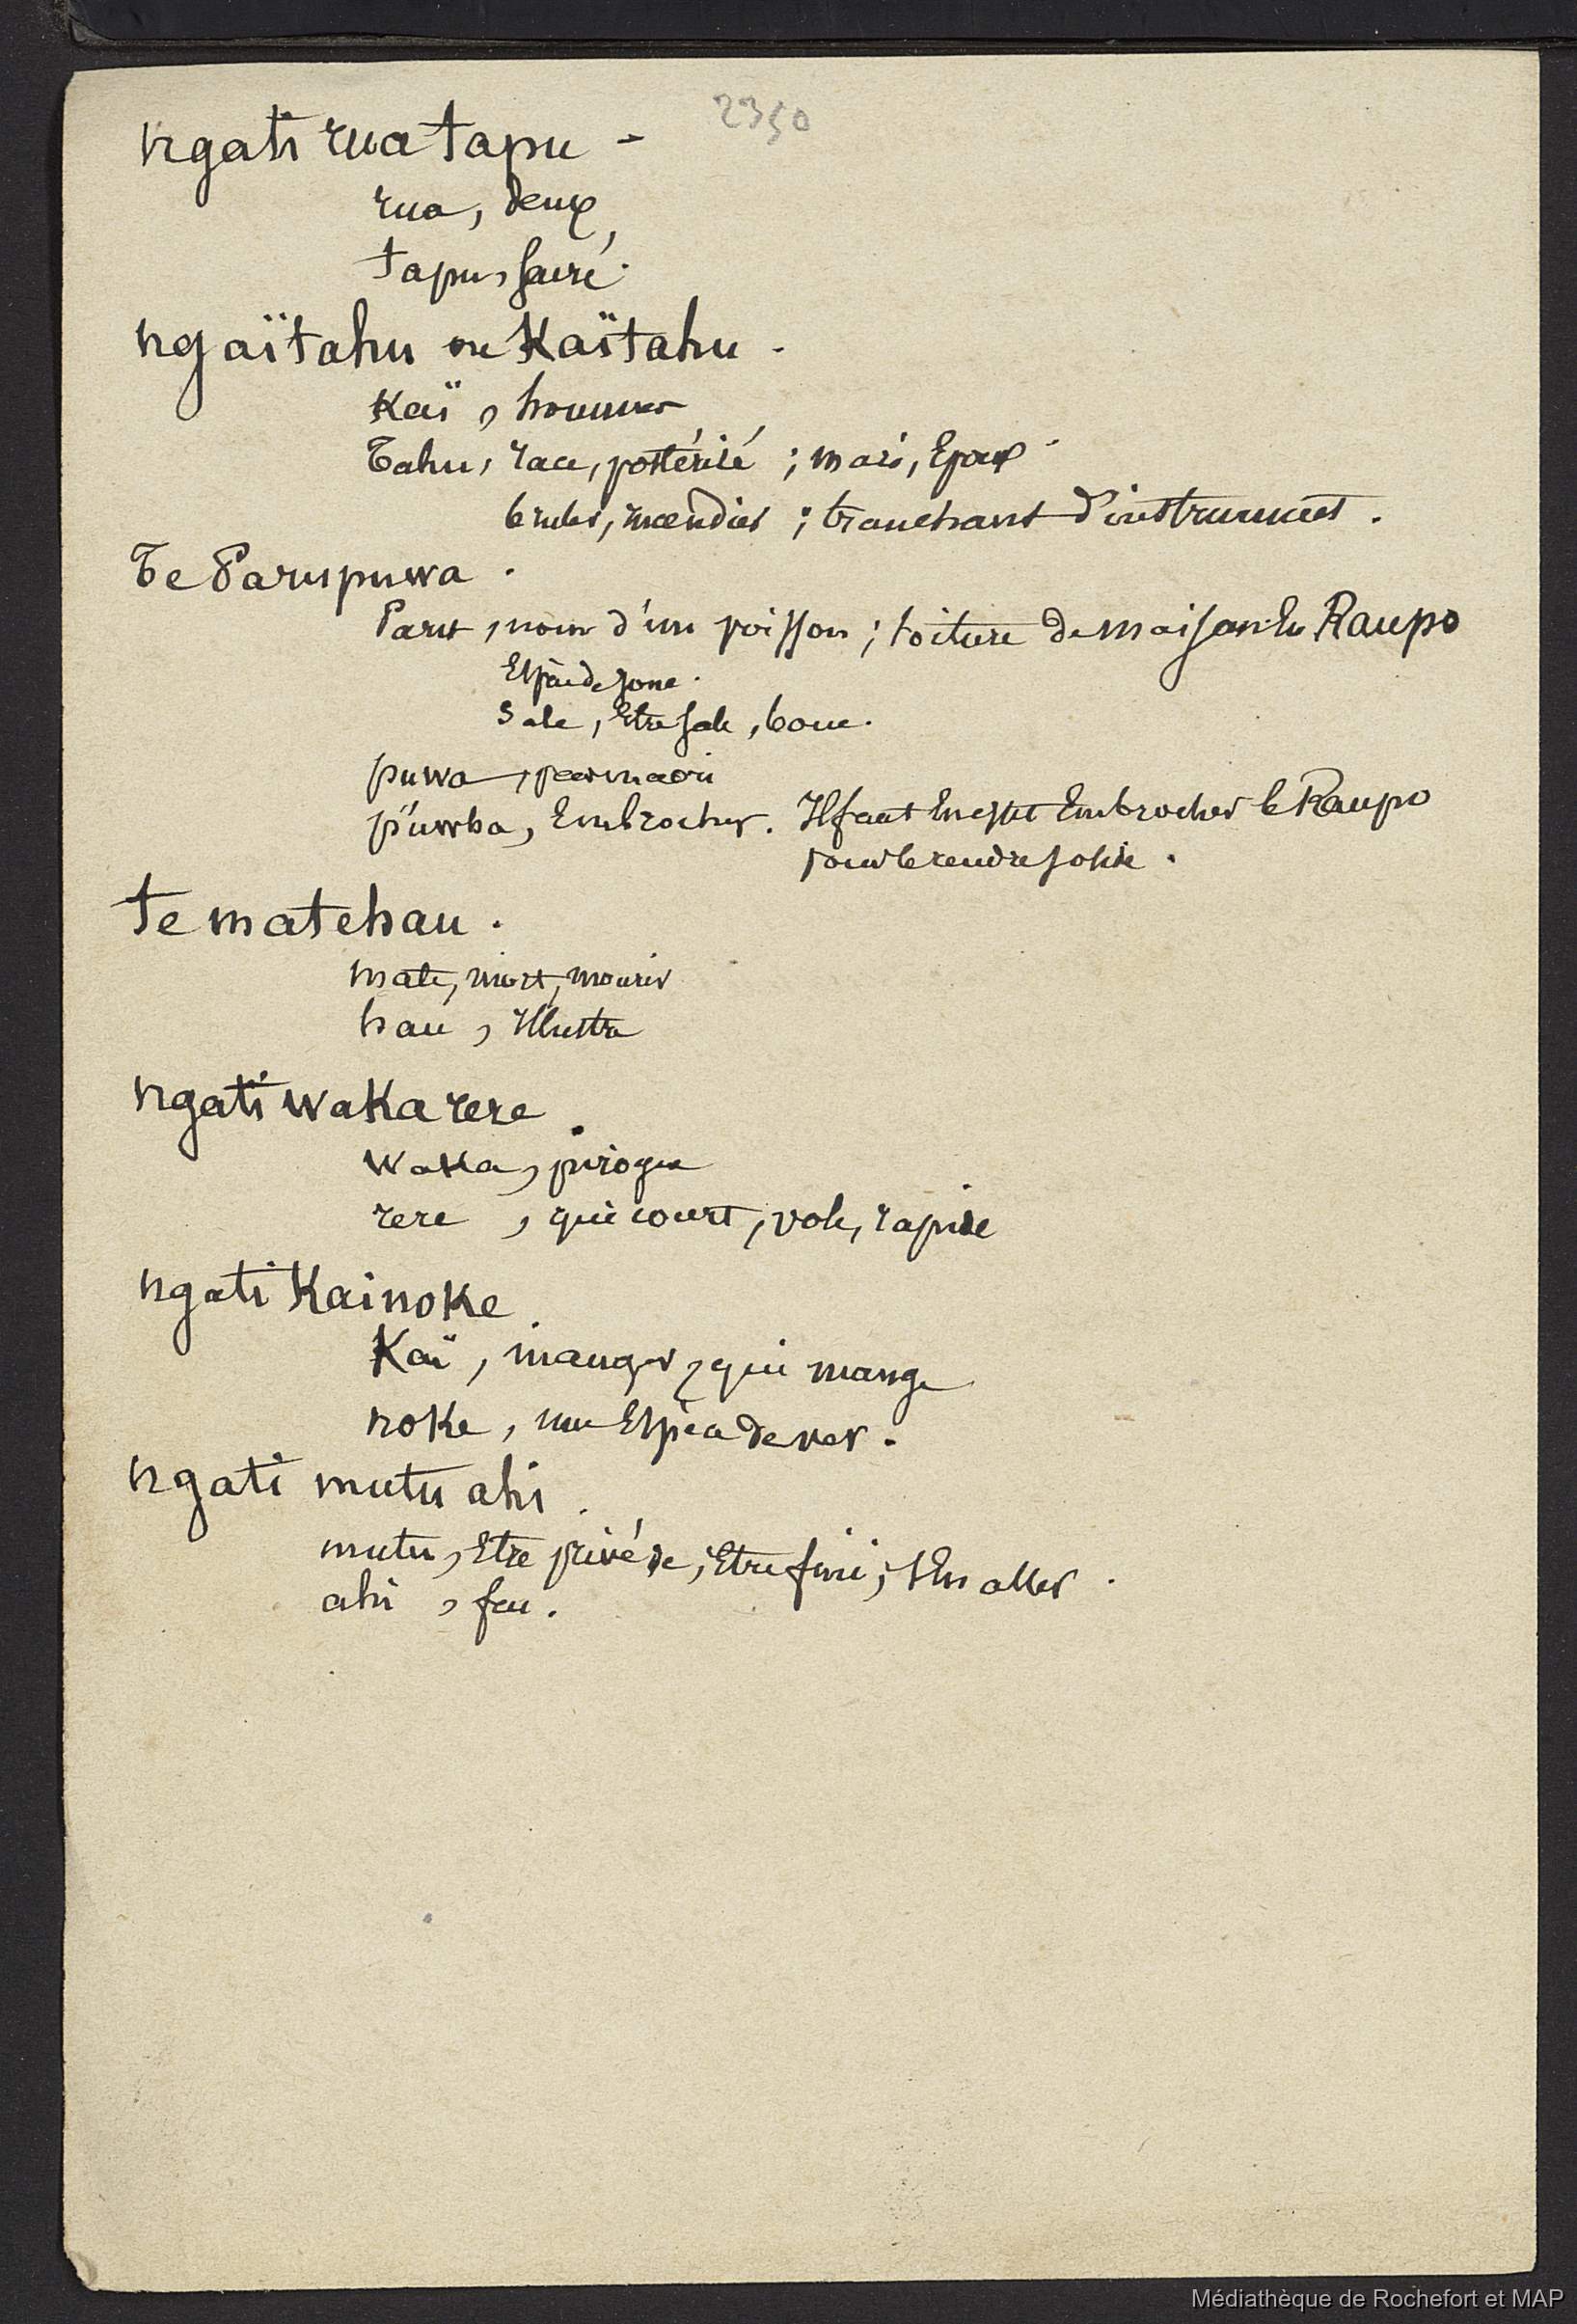 2350
ngati rua tapu -
rua, deux
tapu, sacré.
ngaïtahu ou Kaïtahu.
Kaï, hommes
Tahu, race, postérité ; mari, Epoux
bruler, incendier ; tranchant d'instrument.
Te Parupuwa.
Paru, nom d'un poisson ; toiture de maison En Raupo
Espèce de jonc.
Sale, Etre sale, boue.
puwa, pas maori
puwha, Embrocher. Il faut En effet Embrocher le Raupo
pour le rendre solide.
te matehau.
mate, mort, mourir
hau, Illustre
ngati waka rere.
waka, pirogue
rere, qui court, vole, rapide
ngati Kainoke.
Kaï, manger, qui mange
noke, une Espèce de ver.
ngati mutu ahi.
mutu, Etre privé de ; Etre fini ; s'En aller.
ahi, feu.
Médiathèque de Rochefort et MAP